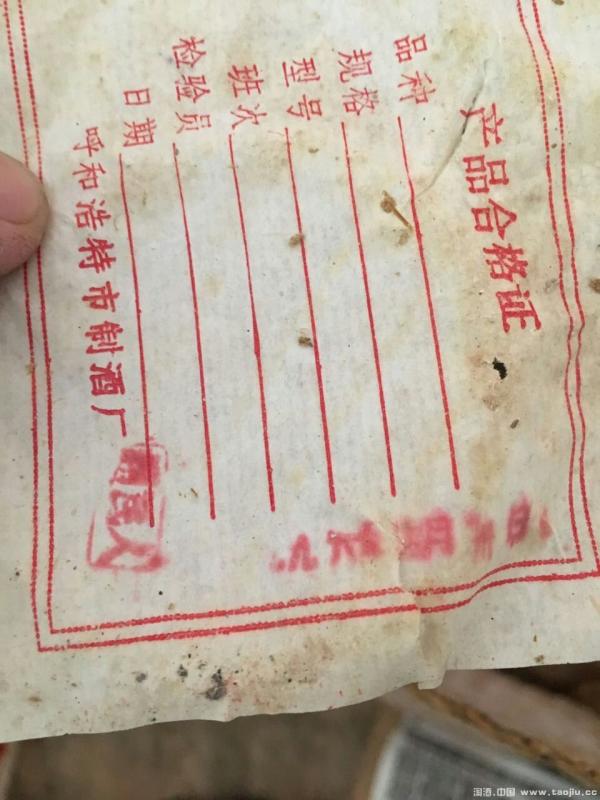 产品合格证
品种
规格
型号
班次
检验员
日期
呼和浩特市制酒厂
淘酒.中国 www.taojiu.cc